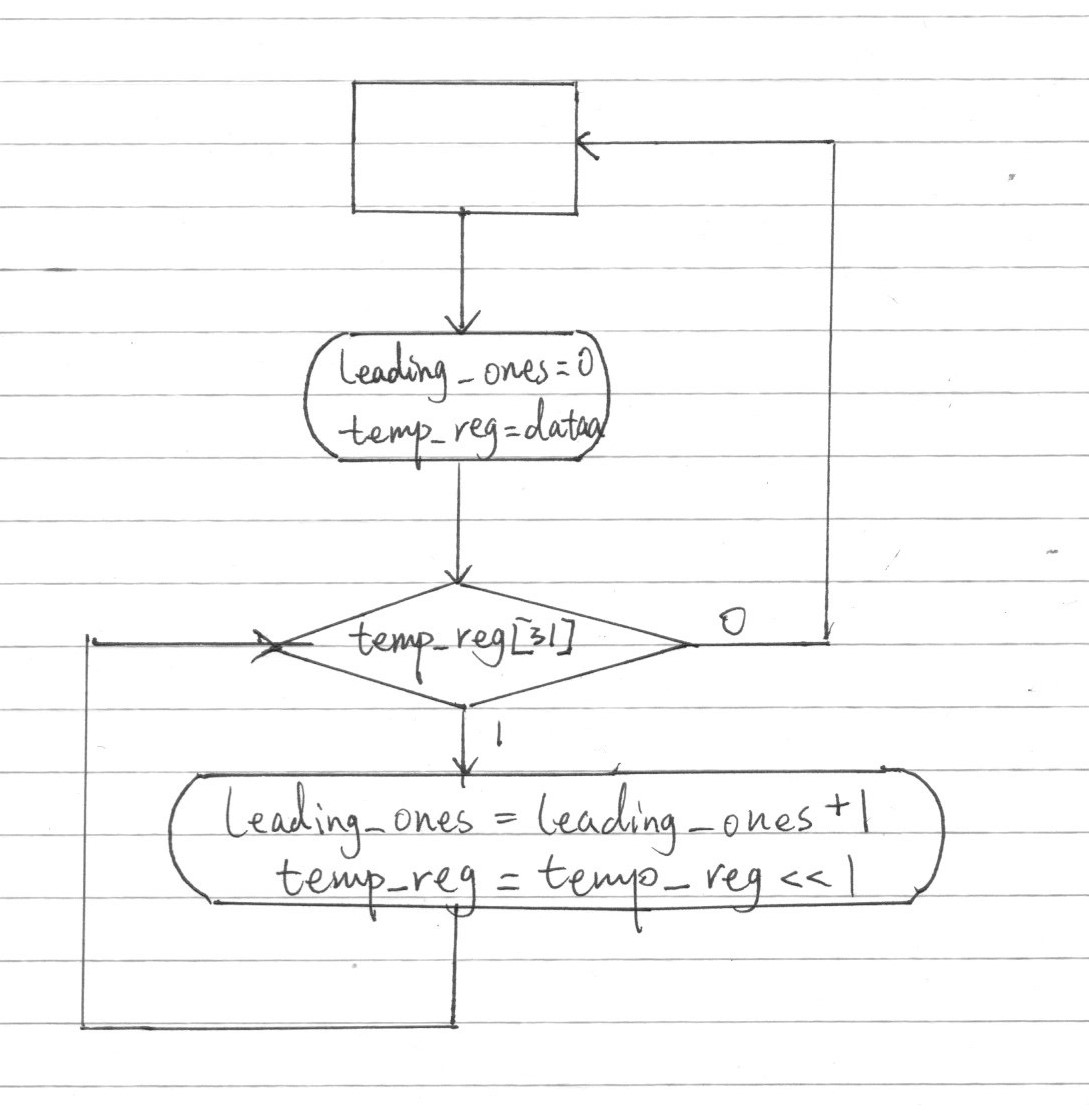 leading_ones=0
temp_reg=dataa
temp_reg[31]
0
1
leading_ones = leading_ones +1
temp_reg = temp_reg << 1